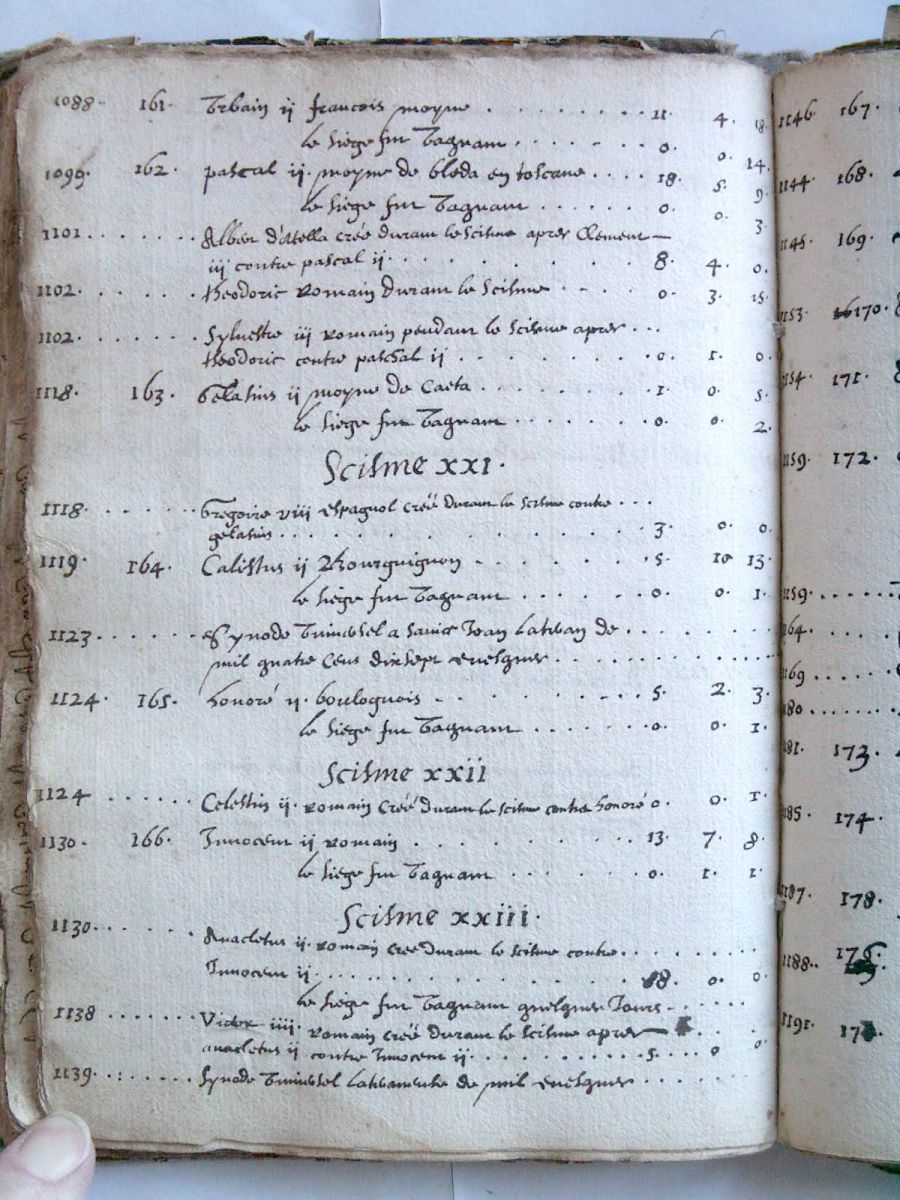 1088. 161. Vrbain ij francois moyne . . . . . . . . 11. 4. 18.
le siege fut vaquant . . . . . . 0. 0. 14.
1099. 162. pascal ij. moyne de bleda en toscane . . . . 18. 5. 9.
le siege fut vaquant . . . . . 0. 0. 3.
1101 . . . . . . Alber d'Atella créé durant le scisme apres Clement
iij contre pascal ij . . . . . . . . . 8. 4. 0.
1102. . . . . . . theodoric romain durant le scisme . . . . 0. 3. 15.
1102. . . . . . . Sylvestre iij romain pendant le scisme apres . . .
theodoric contre paschal ij . . . . . . . 0. 1. 0.
1118. 163. Gelasius ij moyne de Caeta . . . . . . . 1. 0. 5.
le siege fut vaquant . . . . . . 0. 0. 2.
Scisme xxi.
1118. . . . . . . Gregoire viij espagnol créé durant le scisme contre . . .
gelasius . . . . . . . . . . . . . 3. 0. 0.
1119. 164. Calistus ij Bourguignon . . . . . . . 5. 10 13.
le siege fut vaquant . . . . . . 0. 0. 1.
1123 . . . . . . Synode vniversel a sainct Jean latran de . . . . . .
mil quatre cens dixsept evesques . . . . . . . . . .
1124. 165. honoré ij. boulognois . . . . . . . . 5. 2. 3.
le siege fut vaquant . . . . . . 0. 0. 1.
Scisme xxii
1124 . . . . . . Celestin ij. romain créé durant le scisme contre honoré 0. 0. 1.
1130. 166. Innocent ij romain . . . . . . . . 13. 7. 8.
le siege fut vaquant . . . . . . 0. 1. 1.
Scisme xxiii.
1130. . . . . . . Anacletus ij. romain créé durant le scisme contre . . . . . .
Innocent ij . . . . . . . . . . . . 8. 0. 0.
le siege fut vaquant quelques jours . . . . .
1138 . . . . . . Victor iiij. romain créé durant le scisme apres
anacletus ij contre Innocent ij . . . . . . . . . 5. 0 0.
1139. . : . . . . . Synode vniversel de mil evesques . . . . . .
1146 167.
1144 168.
1145 169.
1153 170.
1154 171.
1159. 172.
1159. . . . . . .
1164. .
1169 . . . . . .
180. . . . . . .
181. 173.
185. 174.
1187. 178.
1188. . 175.
1191. 17